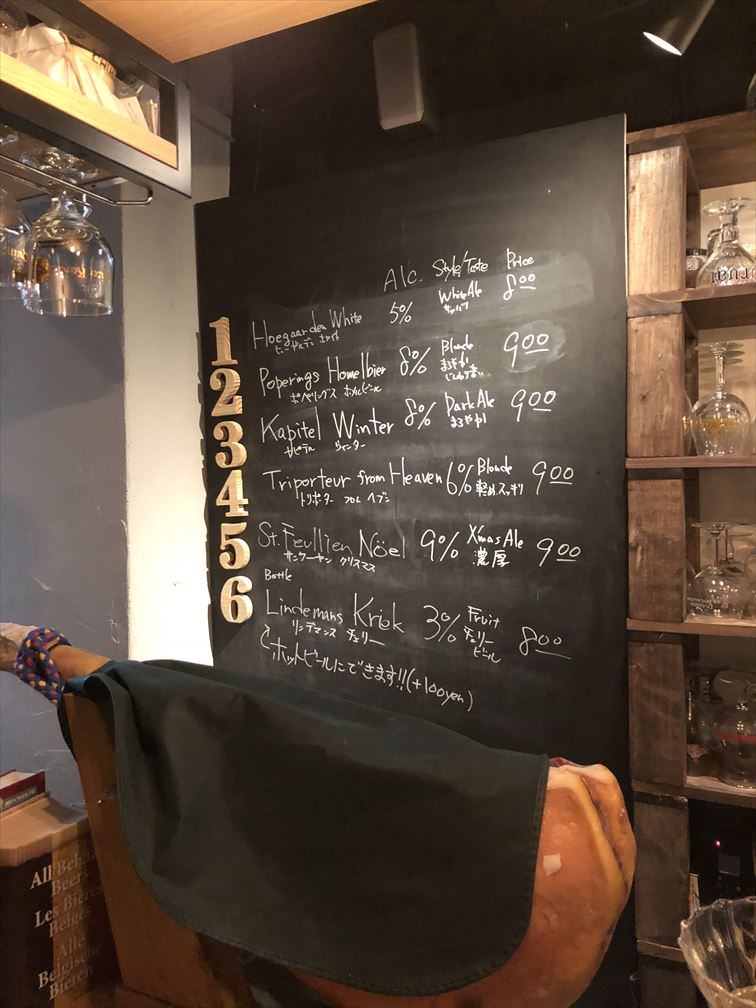 Alc. Style/Taste Price
1 Hoegaarden White 5% White Ale 800
ヒューガルデン ホワイト
2 Poperings Homelbier 8% Blonde 900
ポペリングス ホメルビール
3 Kapitel Winter 8% Dark Ale 900
カピテル ウィンター まろやか
4 Triporteur from Heaven 6% Blonde 900
トリポーター フロム ヘブン 軽めスッキリ
5 St. Feullien Nöel 9% Xmas Ale 900
サンフーヤン クリスマス 濃厚
Bottle
6 Lindemans Kriek 3% Fruit 800
リンデマンス チェリー チェリー
ビール
ホットビールにできます!!(+100yen)
All Belgian
Beers
Les Bières
Belges
Alle
Belgische
Bieren